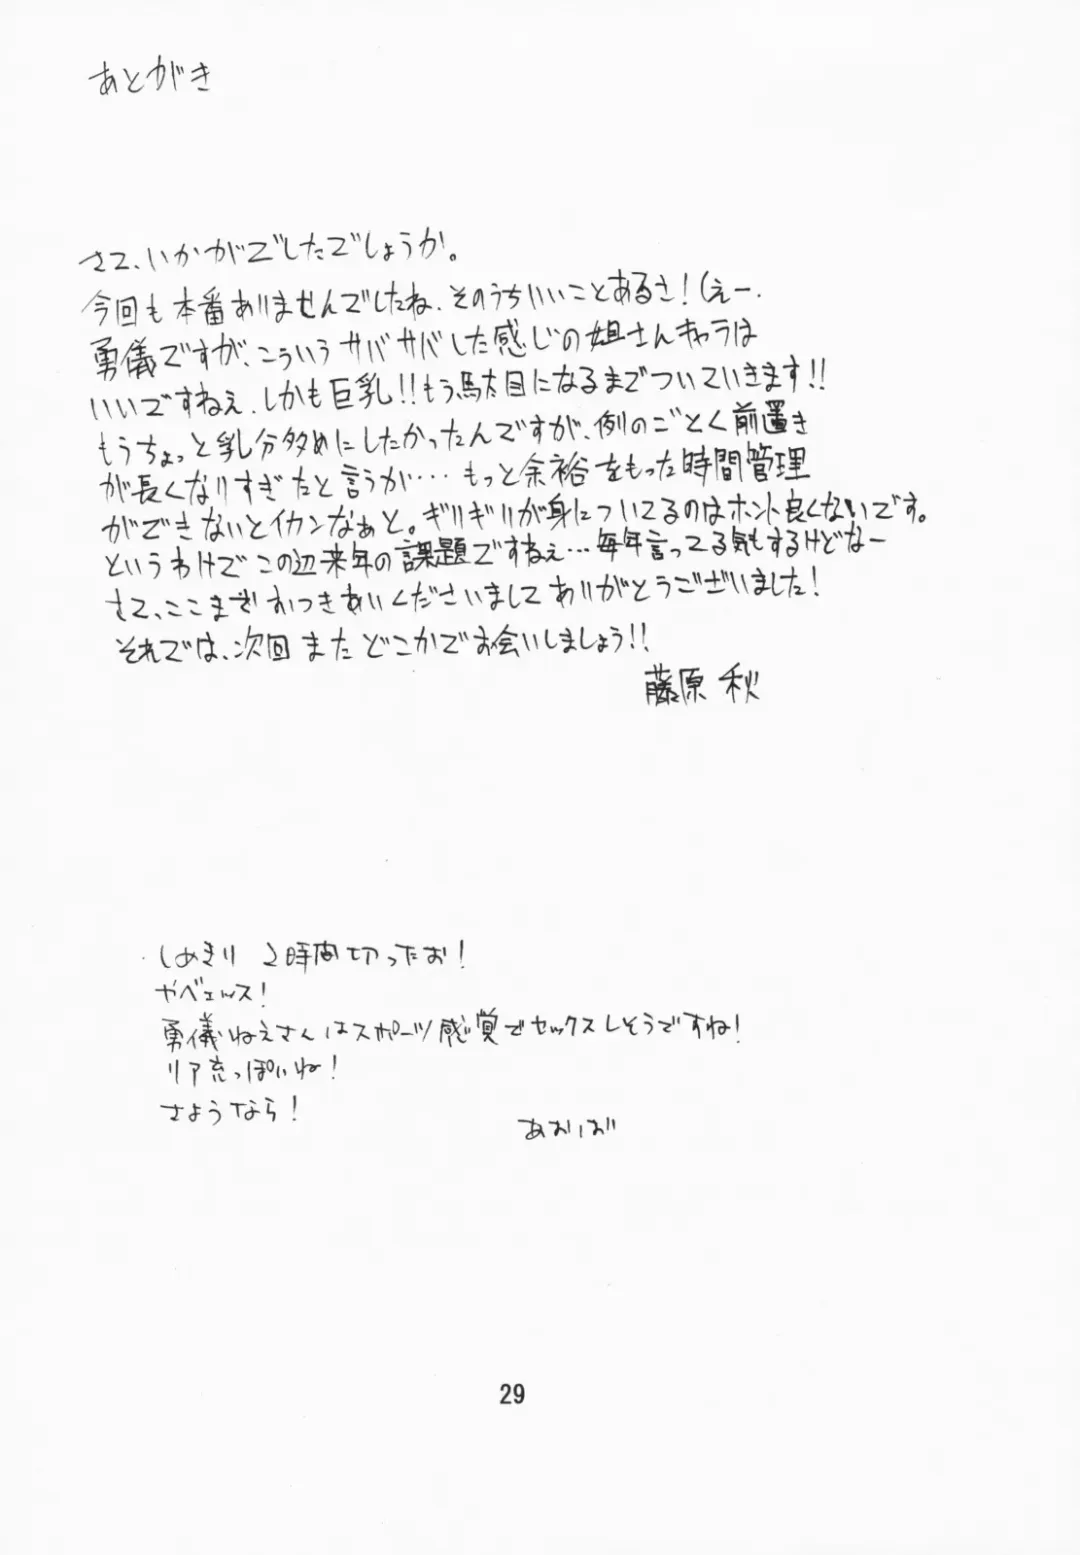 あとがき
さて、いかがでしたでしょうか。
今回も本番ありませんでしたね、そのうちいいことあるさ!(えー.
勇儀ですが、こういうサバサバした感じの姐さんキャラは
いいですねぇ、しかも巨乳!!もう駄目になるまでついていきます!!
もうちょっと乳分多めにしたかったんですが、例のごとく前置き
が長くなりすぎたと言うか…もっと余裕をもった時間管理
ができないとイカンなぁと。ギリギリが身についてるのはホント良くないです。
というわけでこの辺来年の課題ですねぇ…毎年言ってる気もするけどなー
さて、ここまでおつきあいくださいましてありがとうございました!
それでは、次回またどこかでお会いしましょう!!
藤原 秋
しめきり 2時間切ったお!
やべェwス!
勇儀ねえさんはスポーツ感覚でセックスしそうですね!
リア充っぽいね!
さようなら!
あおいば
29